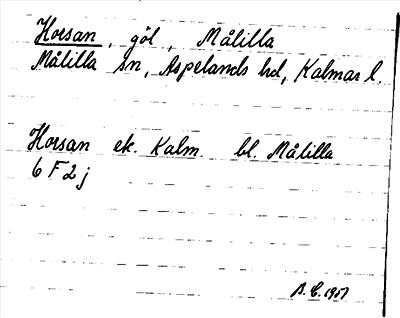 Horsan, göl, Målilla
Målilla sn, Aspelands hd, Kalmar l.
Horsan ek. Kalm. bl. Målilla
6 F 2 j
B. E. 1957